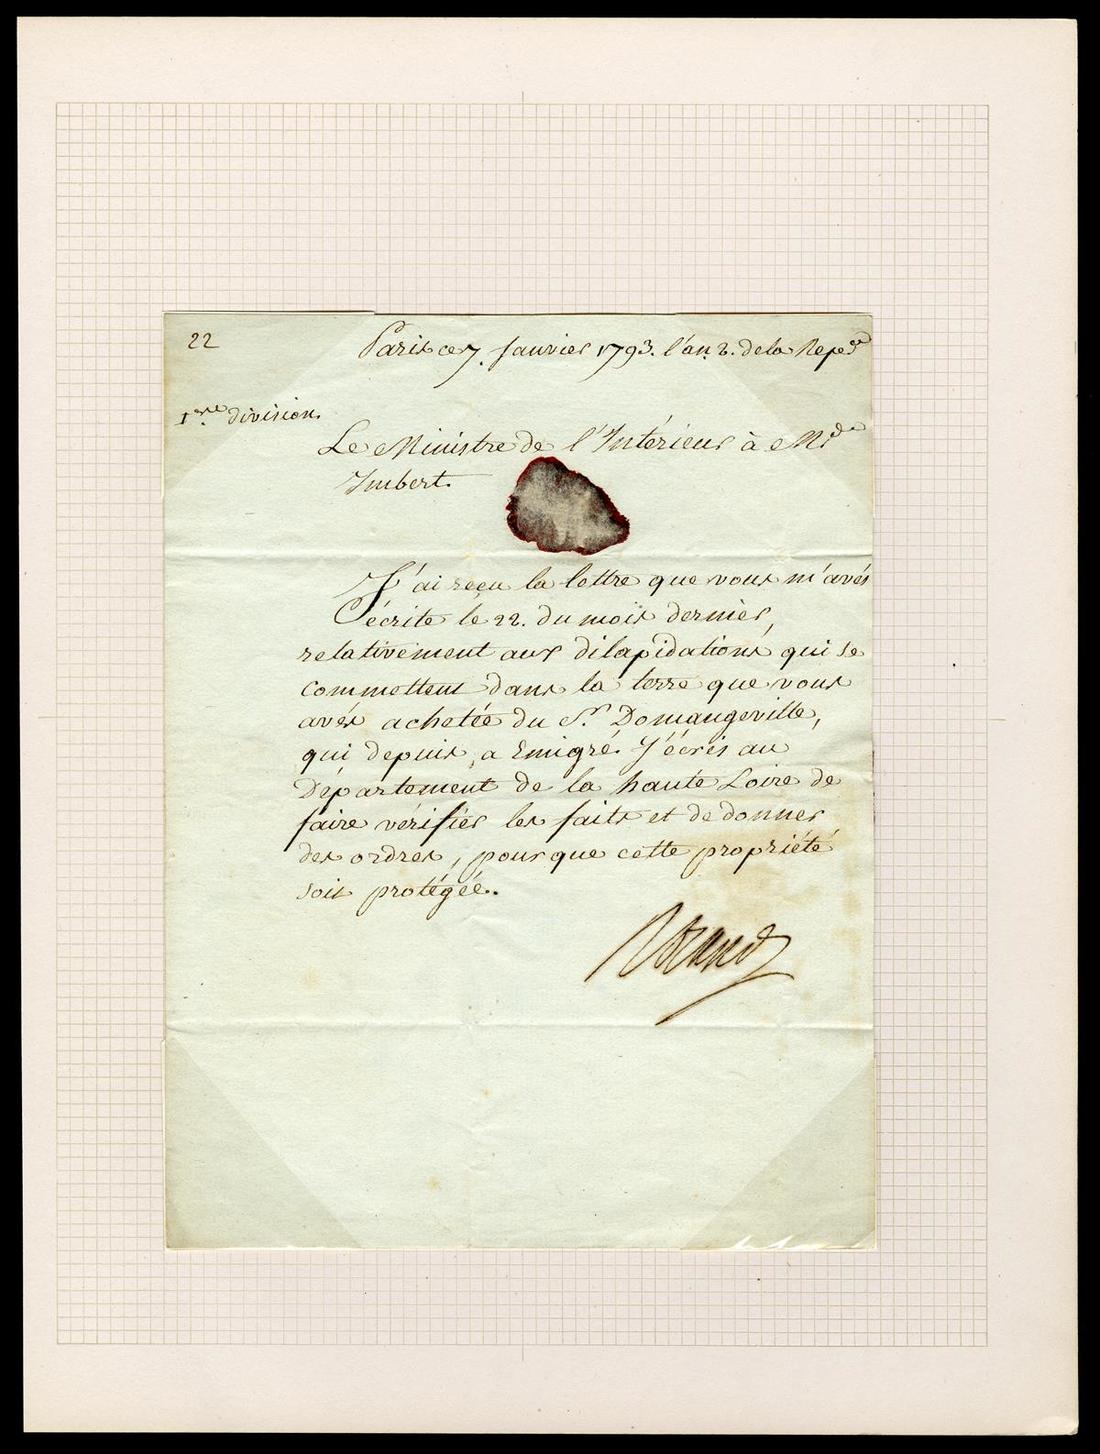 22
Paris ce 7. Janvier 1793. l'an 2. de la Repe.
1ere division.
Le Ministre de l'Intérieur à Mde
Imbert.
J'ai reçu la lettre que vous m'avés
écrite le 22. du mois dernier,
relativement aux dilapidations qui se
commettent dans la terre que vous
avés achetée du Sr. Domangeville,
qui depuis, a Emigré. J'écris au
Département de la haute Loire de
faire vérifier les faits et de donner
des ordres, pour que cette propriété
soit protégée.